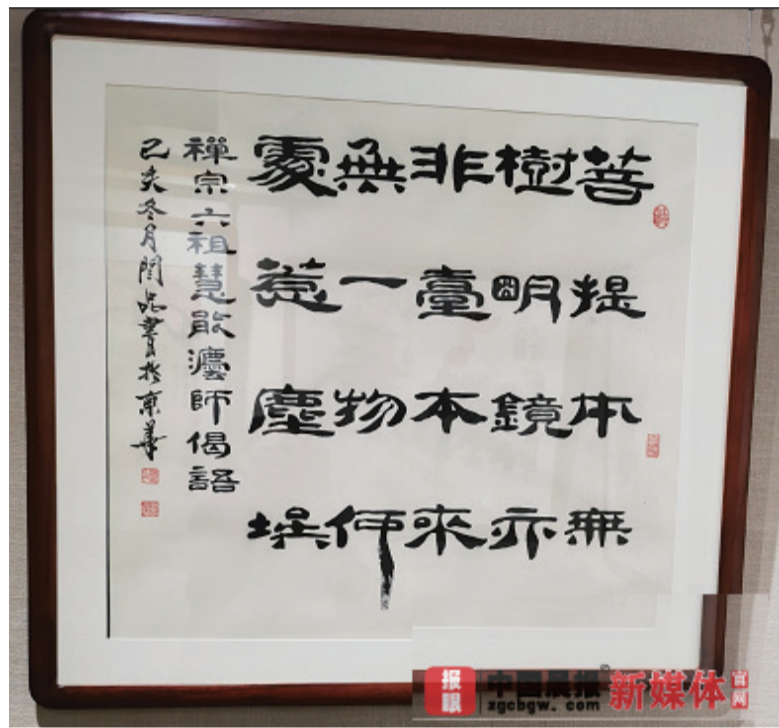 菩提本無
樹明鏡亦
非臺本來
無一物何
處惹塵埃
禪宗六祖慧能灋師偈語
己亥冬月閆品書於京華
报眼
中国晨报
zgcbgw.com
新媒体
官网